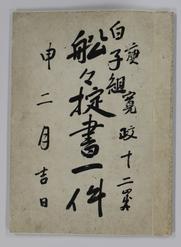 庚寛政十二歳
白子組
船々掟書一件
申二月吉日